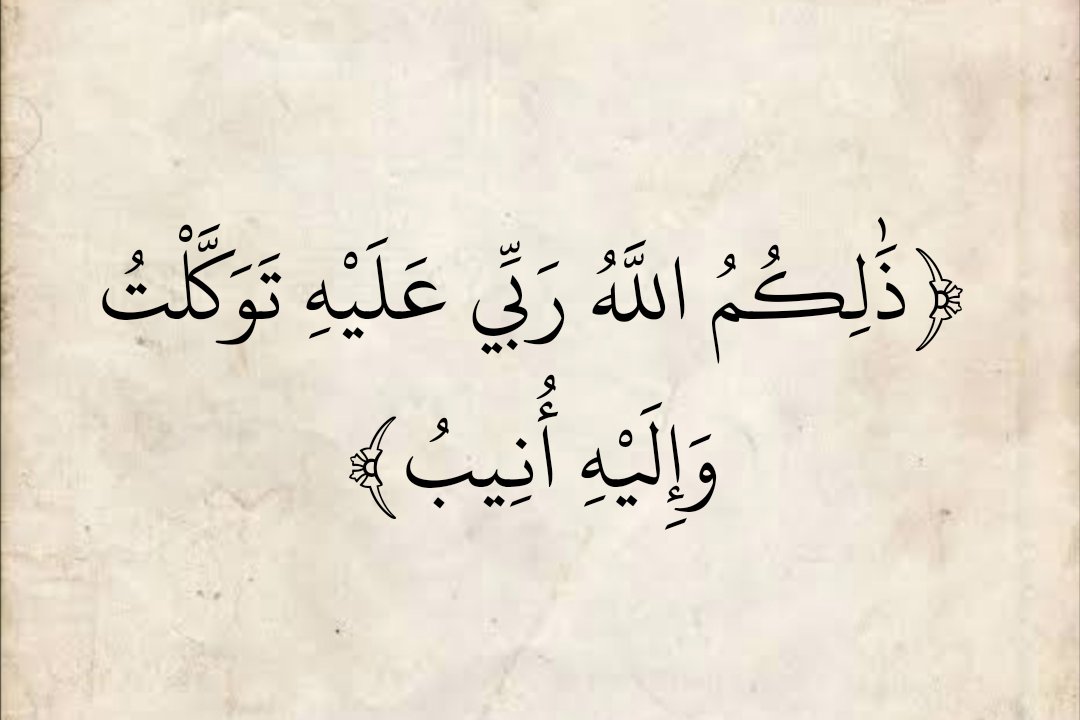 ﴿ذَٰلِكُمُ اللَّهُ رَبِّي عَلَيْهِ تَوَكَّلْتُ
وَإِلَيْهِ أُنِيبُ﴾